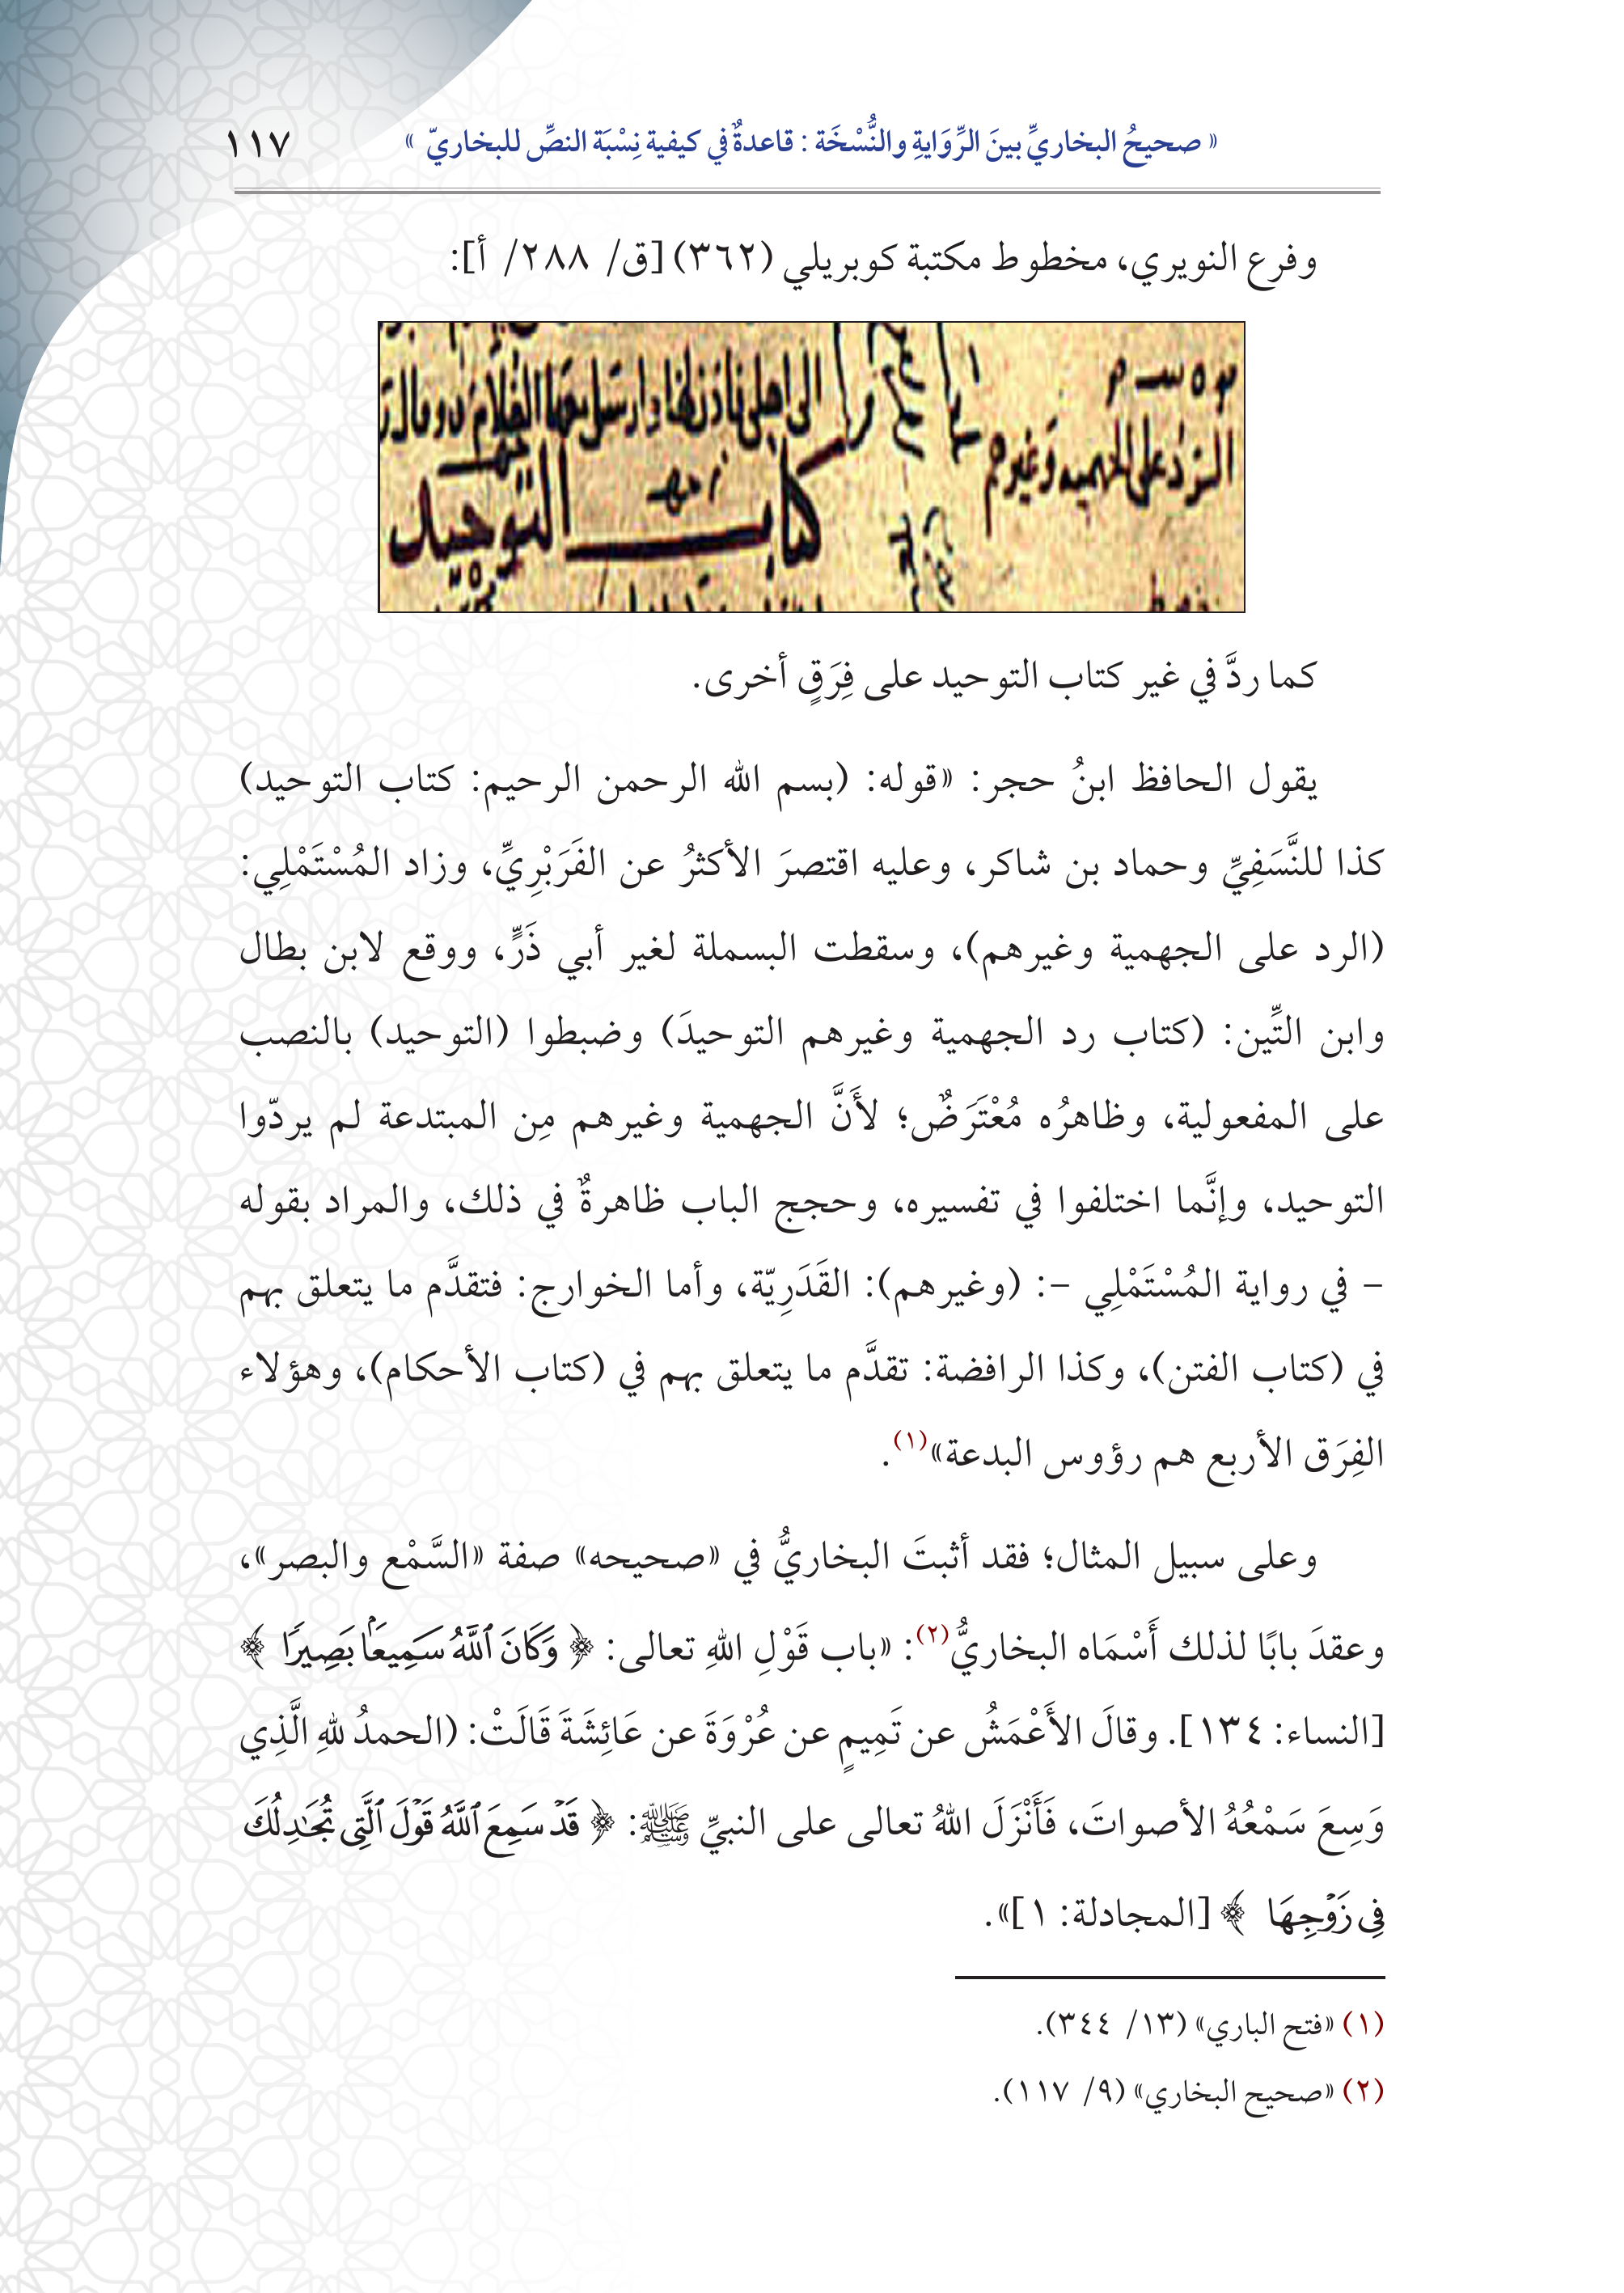 « صحيحُ البخاريِّ بينَ الرِّوَايةِ والنُّسْخَة : قاعدةٌ في كيفية نِسْبَة النصِّ للبخاريّ »
١١٧
وفرع النويري، مخطوط مكتبة كوبريلي (٣٦٢) [ق/ ٢٨٨/ أ]:
الرد على الجهميه وغيرهم
كتاب التوحيد
كما ردَّ في غير كتاب التوحيد على فِرَقٍ أخرى.
يقول الحافظ ابنُ حجر: «قوله: (بسم الله الرحمن الرحيم: كتاب التوحيد)
كذا للنَّسَفِيِّ وحماد بن شاكر، وعليه اقتصرَ الأكثرُ عن الفَرَبْرِيِّ، وزاد المُسْتَمْلِي:
(الرد على الجهمية وغيرهم)، وسقطت البسملة لغير أبي ذَرٍّ، ووقع لابن بطال
وابن التِّين: (كتاب رد الجهمية وغيرهم التوحيدَ) وضبطوا (التوحيد) بالنصب
على المفعولية، وظاهرُه مُعْتَرَضٌ؛ لأَنَّ الجهمية وغيرهم مِن المبتدعة لم يردّوا
التوحيد، وإنَّما اختلفوا في تفسيره، وحجج الباب ظاهرةٌ في ذلك، والمراد بقوله
– في رواية المُسْتَمْلِي –: (وغيرهم): القَدَرِيّة، وأما الخوارج: فتقدَّم ما يتعلق بهم
في (كتاب الفتن)، وكذا الرافضة: تقدَّم ما يتعلق بهم في (كتاب الأحكام)، وهؤلاء
الفِرَق الأربع هم رؤوس البدعة»(١).
وعلى سبيل المثال؛ فقد أثبتَ البخاريُّ في «صحيحه» صفة «السَّمْع والبصر»،
وعقدَ بابًا لذلك أَسْمَاه البخاريُّ(٢): «باب قَوْلِ اللهِ تعالى: ﴿ وَكَانَ ٱللَّهُ سَمِيعَۢا بَصِيرًا ﴾
[النساء: ١٣٤]. وقالَ الأَعْمَشُ عن تَمِيمٍ عن عُرْوَةَ عن عَائِشَةَ قَالَتْ: (الحمدُ للهِ الَّذِي
وَسِعَ سَمْعُهُ الأصواتَ، فَأَنْزَلَ اللهُ تعالى على النبيِّ ﷺ: ﴿ قَدْ سَمِعَ ٱللَّهُ قَوْلَ ٱلَّتِي تُجَٰدِلُكَ
فِي زَوْجِهَا ﴾ [المجادلة: ١]».
(١) «فتح الباري» (١٣/ ٣٤٤).
(٢) «صحيح البخاري» (٩/ ١١٧).